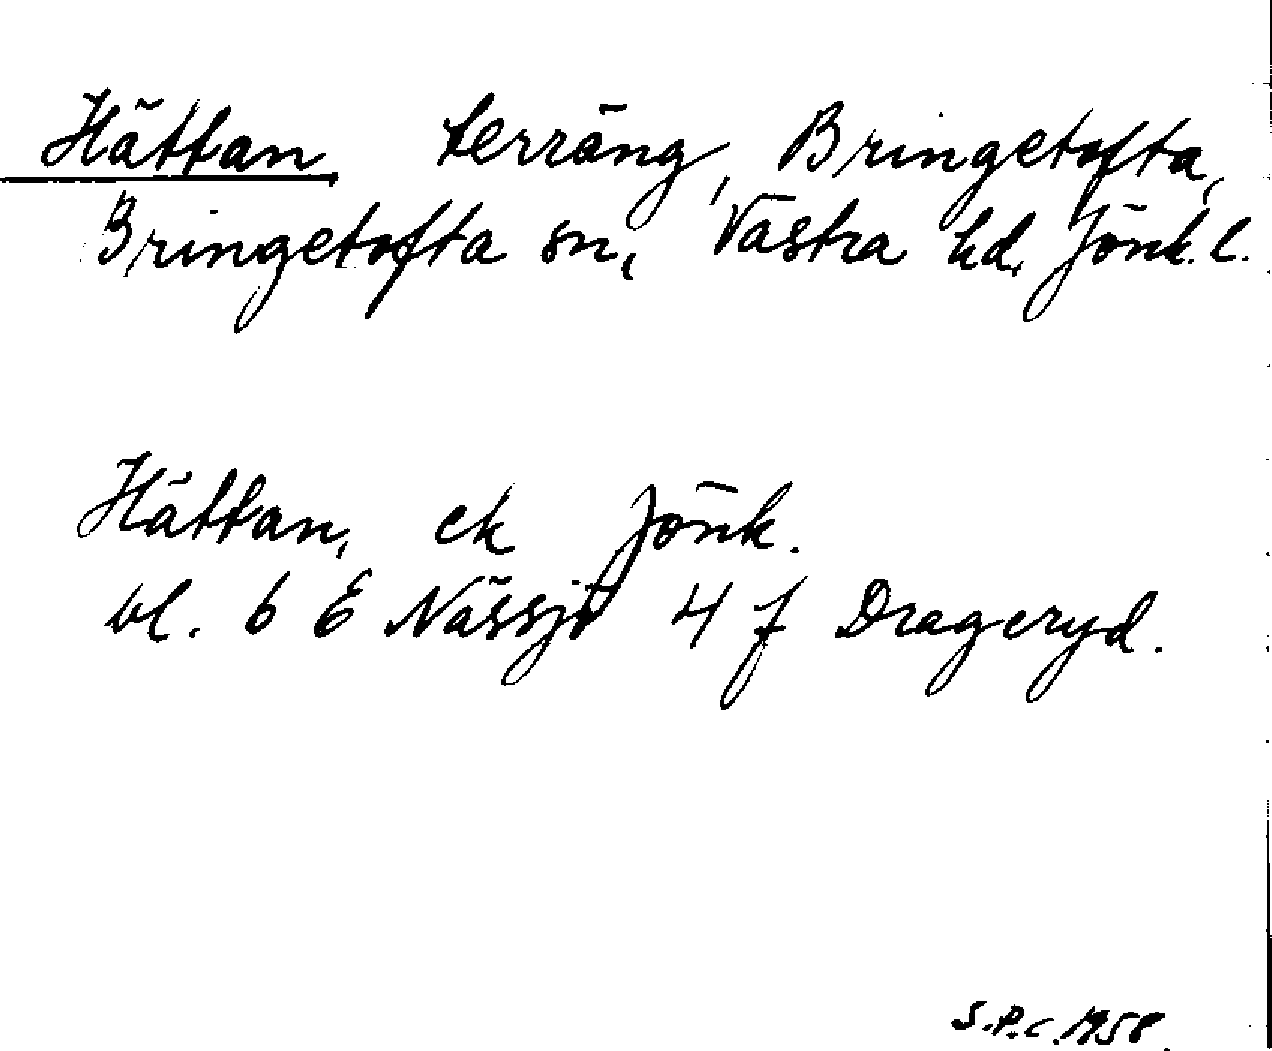 Hättan terräng, Bringetofta,
Bringetofta sn, Västra hd, Jönk. l.
Hättan, ek Jönk.
bl. 6 E Nässjö 4 f Drageryd.
S.P.C. 1958.